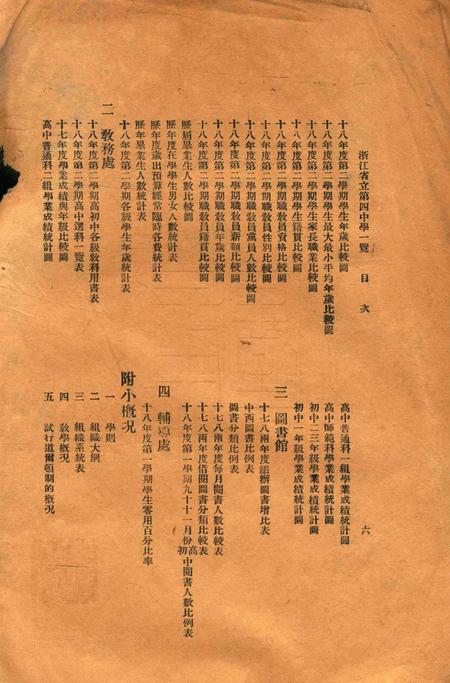 浙江省立第四中學一覽 目次 六
十八年度第二學期學生年歲比較圖
十八年度第二學期學生最大最小平均年歲比較圖
十八年度第二學期學生家長職業比較圖
十八年度第二學期學生籍貫比較圖
十八年度第二學期職敎員資格比較圖
十八年度第二學期職敎員性別比較圖
十八年度第二學期職敎員黨員人數比較圖
十八年度第二學期職敎員薪額比較圖
十八年度第二學期職敎員年歲比較圖
十八年度第二學期職敎員籍貫比較圖
歷屆畢業生人數比較圖
歷年度在學學生男女人數統計表
歷年度歲出預算經常臨時各費統計表
歷年畢業生人數統計表
十八年度第二學期各級學生年歲統計表
二 敎務處
十八年度第二學期高初中各級敎科用書表
十八年度第二學期高中選科一覽表
十七年度學業成績與年級比較圖
高中普通科二組學業成績統計圖
高中普通科一組學業成績統計圖
高中師範科學業成績統計圖
初中二三年級學業成績統計圖
初中一年級學業成績統計圖
三 圖書館
十七八兩年度添辦圖書增比表
中西圖書比例表
圖書分類比例表
十七八兩年度每月閱書人數比較表
十七八兩年度借閱圖書分類比較表
十八年度第一學期九十十一月份高初中閱書人數比例表
四 輔導處
十八年度第一學期學生零用百分比率
附小概況
一 學則
二 組織大綱
三 組織系統表
四 敎學概況
五 試行道爾頓制的概況